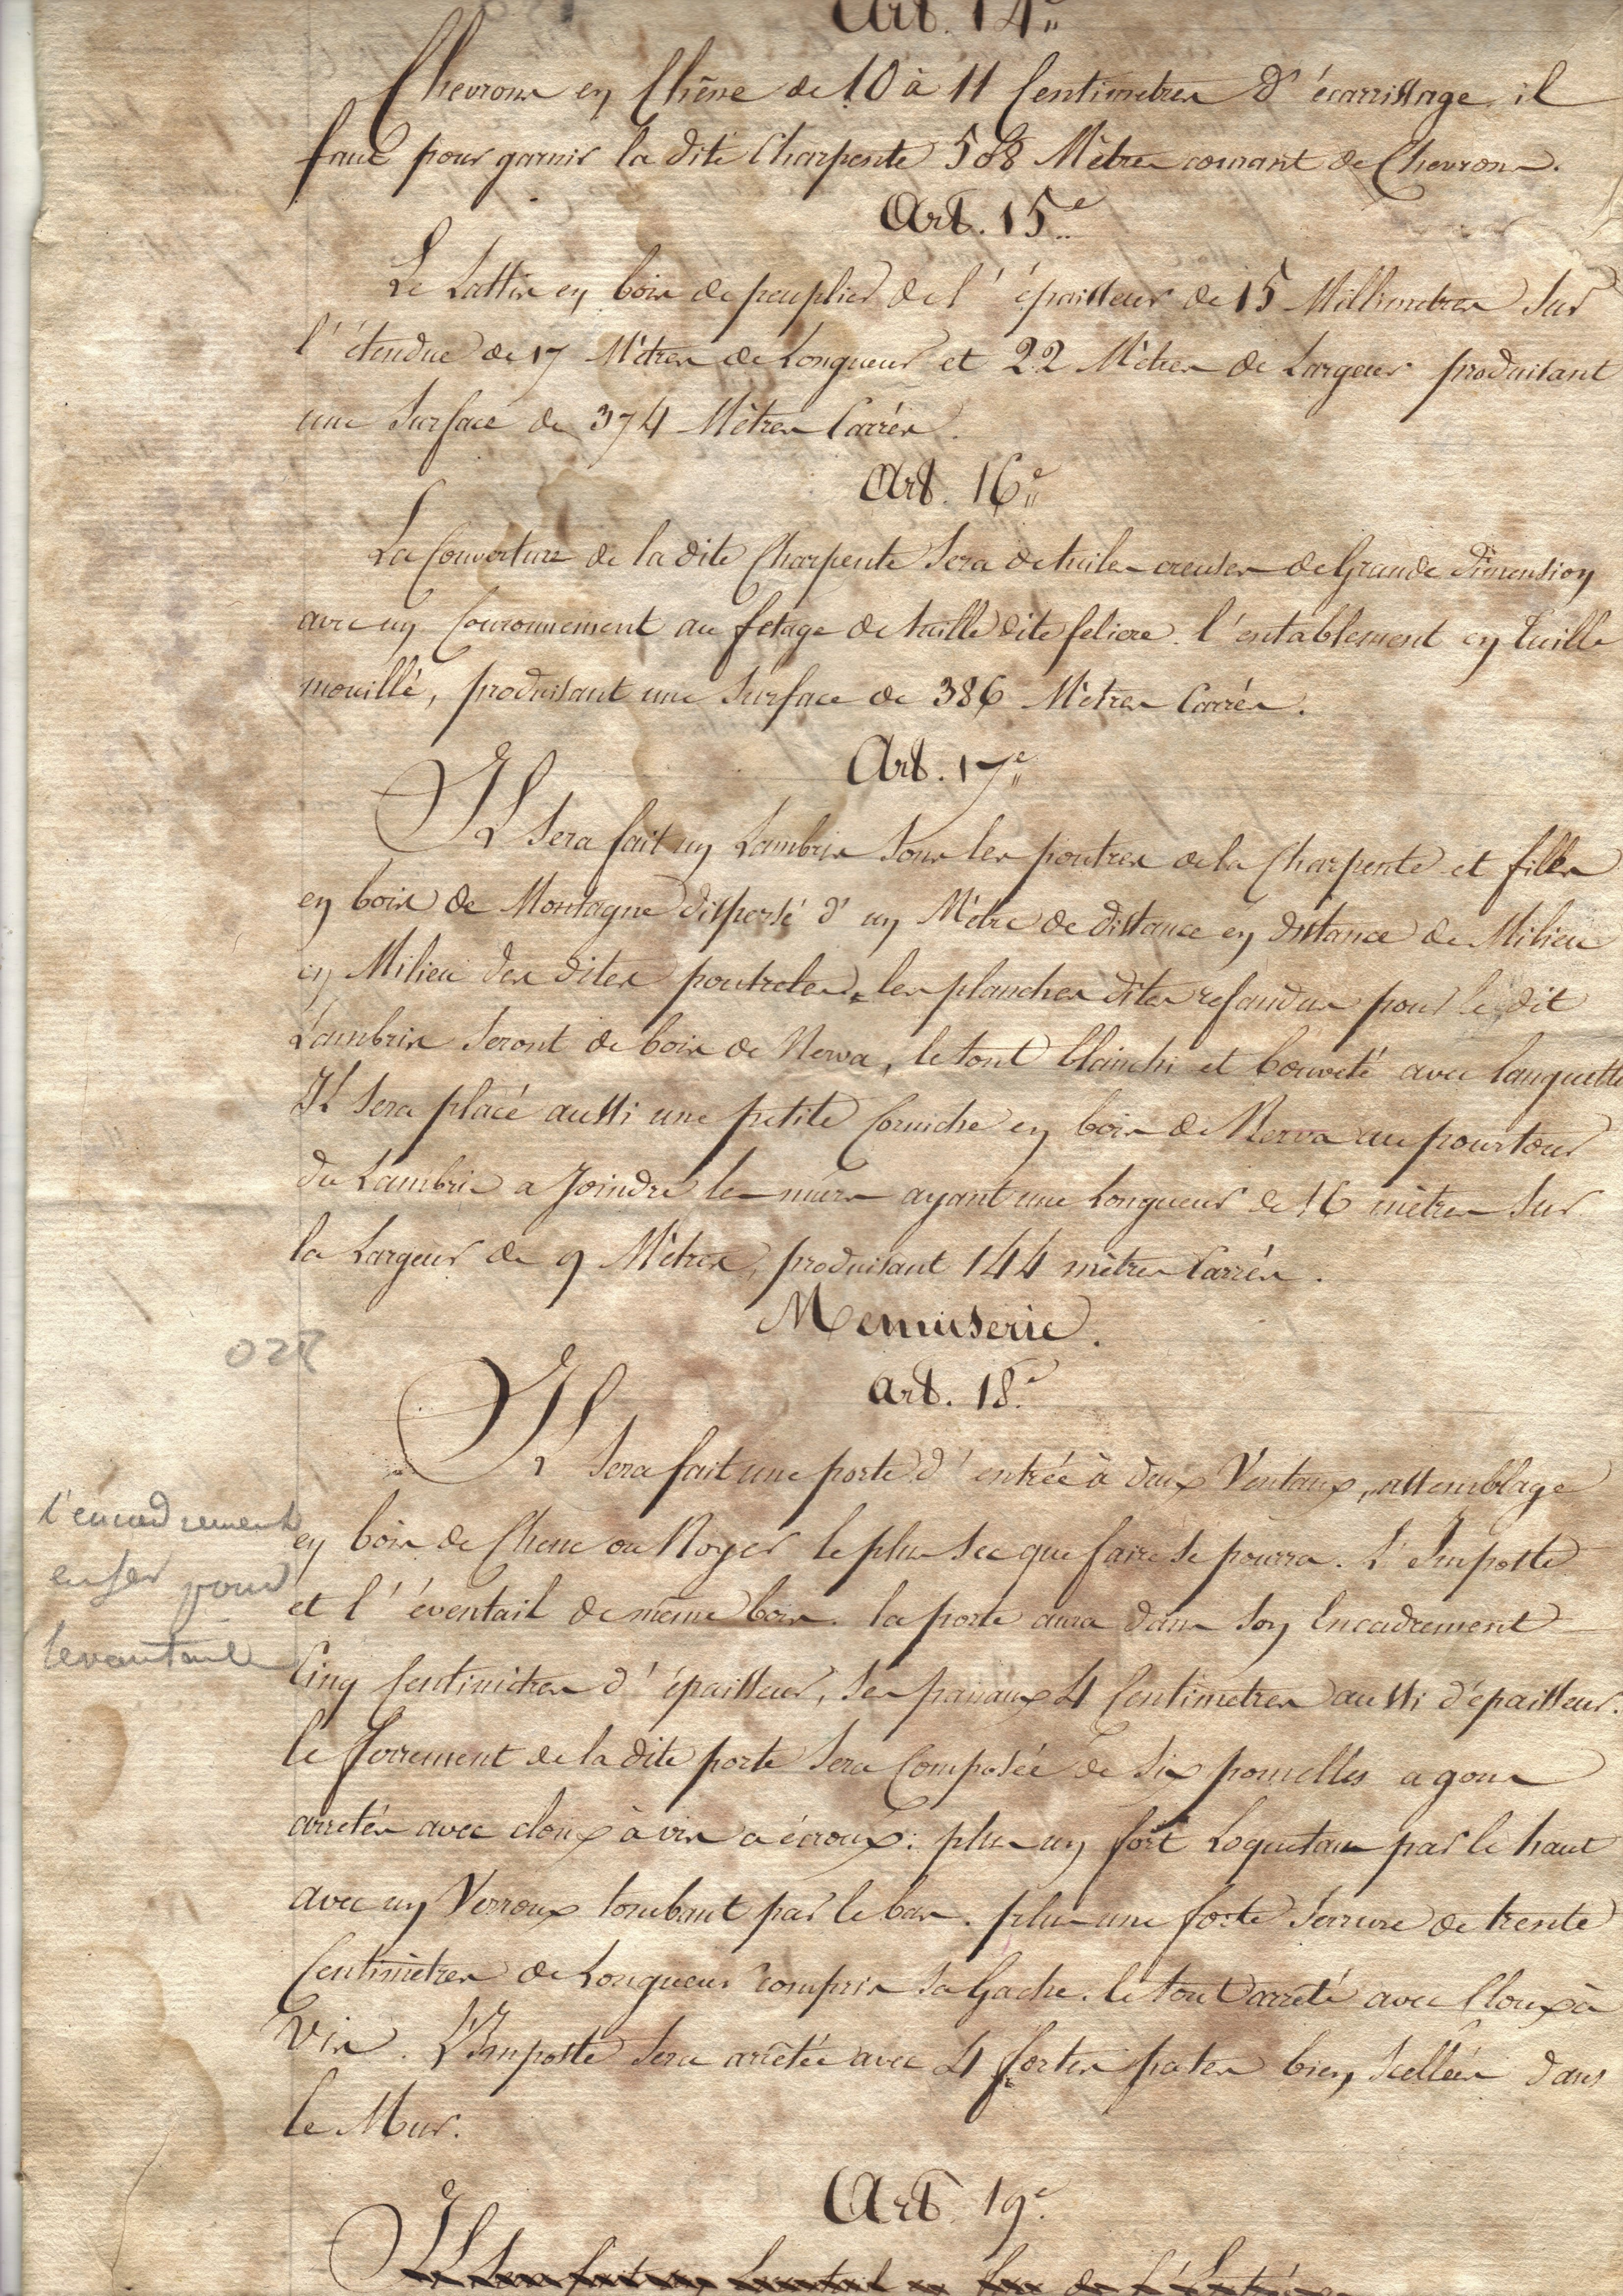 Art. 14e
Chevrons en Chêne de 10 à 11 Centimetres d'écarrissage, il
faut pour garnir la dite Charpente 508 Mètres courant de Chevrons.
Art. 15e
Le Lattis en bois de peuplier de l'épaisseur de 15 Millimetres sur
l'étendue de 17 Mètres de Longueur et 22 Mètres de Largeur produisant
une surface de 374 Mètres Carrés.
Art. 16e
La Couverture de la dite Charpente sera de tuiles creuses de Grande dimension
avec un Couronnement au fetage de tuille dite feliere. l'entablement en tuille
mouillé, produisant une surface de 386 Mètres Carrés.
Art. 17e
Il sera fait un Lambris sous les poutres de la Charpente et filles
en bois de Montagne dispersé d'un Mètre de distance en distance de Milieu
en Milieu des dites poutreles, les planches dites refandus pour le dit
Lambris seront de bois de Nerva, le tout blanchi et bouveté avec languette
Il sera placé aussi une petite Corniche en bois de Nerva au pourtour
du Lambris a joindre les murs ayant une Longueur de 16 mètres sur
la Largeur de 9 Mètres, produisant 144 mètres Carrés.
Menuiserie.
art. 18e
Il sera fait une porte d'entrée à deux Ventaux, assemblage
en bois de Chene ou Noyer le plus sec que faire se pourra. L'Imposte
et l'éventail de même bois. la porte aura dans son Encadrement
Cinq Centimètres d'épaisseur, ses panaux 4 Centimetres aussi d'épaisseur.
le ferrement de la dite porte sera Composée de six pomelles a gons
arretés avec cloux à vis a écroux; plus un fort Loquetau par le haut
avec un Verroux tombant par le bas. plus une forte serrure de trente
Centimètres de Longueur compris sa Gache. le tout arreté avec Cloux à
Vis. L'Imposte sera arretée avec 4 fortes pates bien scellées dans
le Mur.
l'encadrement
en fer pour
levantaille
020
Art. 19e
Il sera fait un